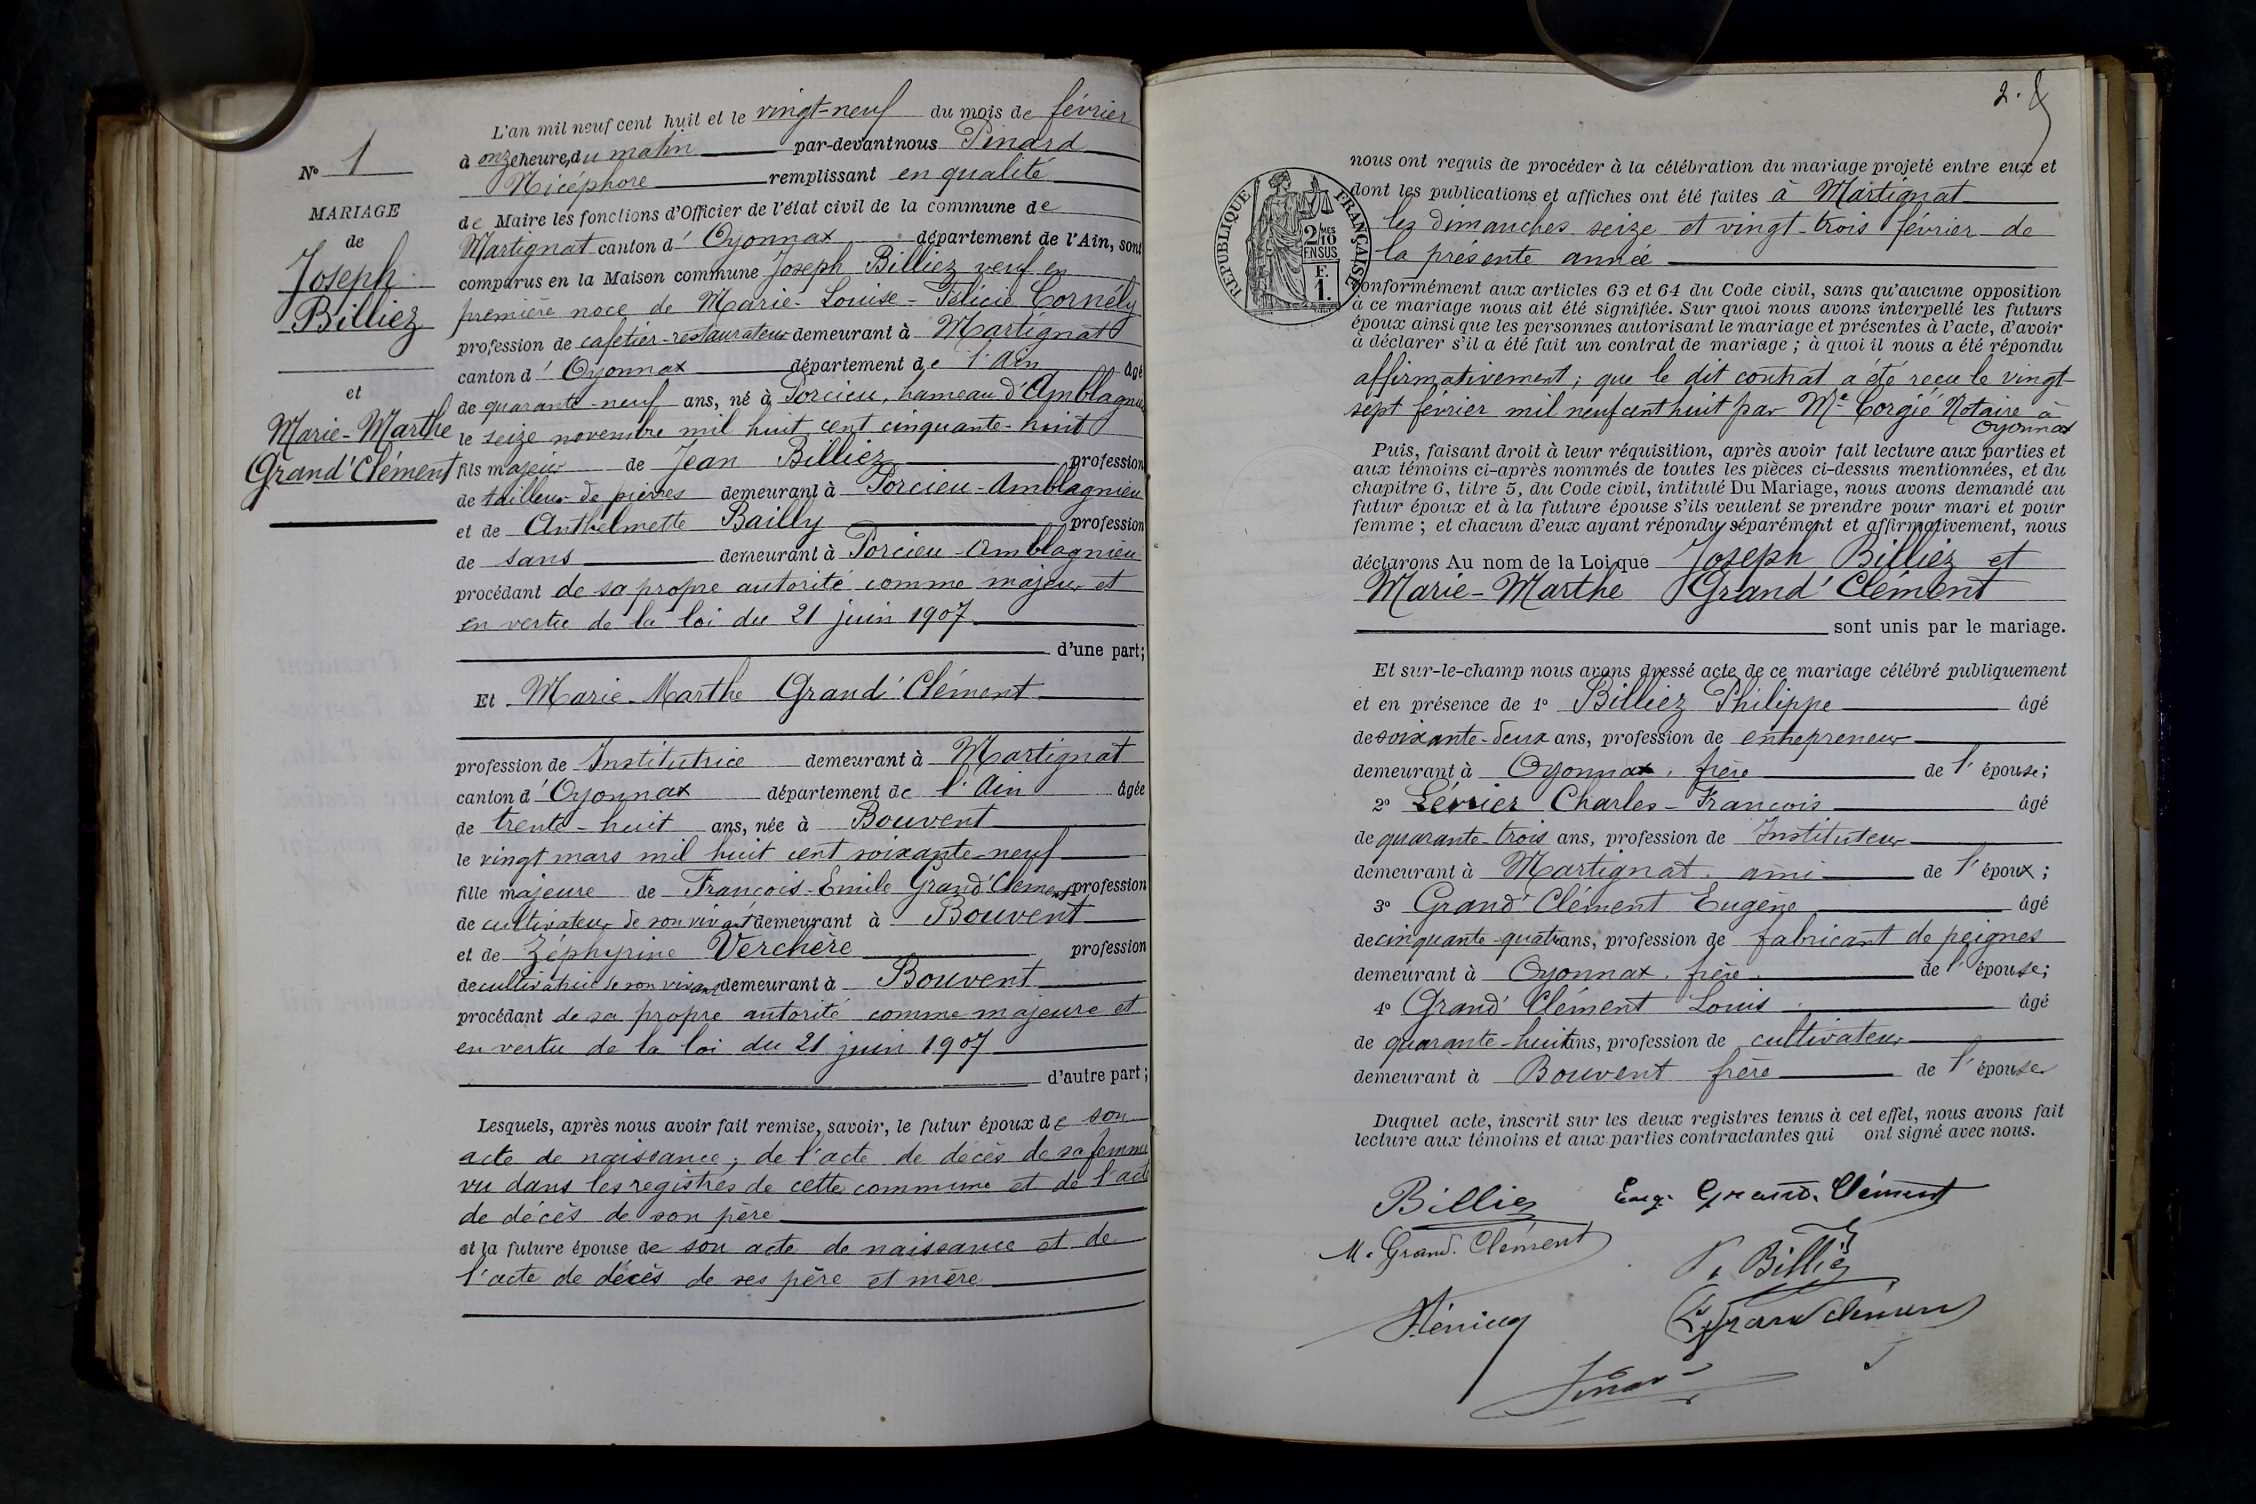 L'an mil neuf cent huit et le vingt-neuf du mois de février
à onze heures du matin par-devant nous Pinard
Nicéphore remplissant en qualité
de Maire les fonctions d'Officier de l'état civil de la commune de
Martignat canton d' Oyonnax département de l'Ain, sont
comparus en la Maison commune Joseph Billiez veuf en
première noce de Marie-Louise-Félicie Cornély
profession de cafetier-restaurateur demeurant à Martignat
canton d' Oyonnax département de l'Ain âgé
de quarante-neuf ans, né à Porcieu, hameau d'Amblagnieu
le seize novembre mil huit cent cinquante-huit
fils majeur de Jean Billiez profession
de tailleur de pierres demeurant à Porcieu-Amblagnieu
et de Anthelmette Bailly profession
de sans demeurant à Porcieu-Amblagnieu
procédant de sa propre autorité comme majeur et
en vertu de la loi du 21 juin 1907
d'une part;
Et Marie-Marthe Grand'Clément
profession de Institutrice demeurant à Martignat
canton d' Oyonnax département de l'Ain âgée
de trente-huit ans, née à Bouvent
le vingt mars mil huit cent soixante-neuf
fille majeure de François-Emile Grand'Clément profession
de cultivateur de son vivant demeurant à Bouvent
et de Zéphyrine Verchère profession
de cultivatrice de son vivant demeurant à Bouvent
procédant de sa propre autorité comme majeure et
en vertu de la loi du 21 juin 1907
d'autre part;
Lesquels, après nous avoir fait remise, savoir, le futur époux de son
acte de naissance; de l'acte de décès de sa femme
vu dans les registres de cette commune et de l'acte
de décès de son père
et la future épouse de son acte de naissance et de
l'acte de décès de ses père et mère
N° 1
MARIAGE
de
Joseph
Billiez
et
Marie-Marthe
Grand'Clément
2.
RÉPUBLIQUE FRANÇAISE
2 MES
10
EN SUS
F.
1.
nous ont requis de procéder à la célébration du mariage projeté entre eux et
dont les publications et affiches ont été faites à Martignat
les dimanches seize et vingt-trois février de
la présente année
conformément aux articles 63 et 64 du Code civil, sans qu'aucune opposition
à ce mariage nous ait été signifiée. Sur quoi nous avons interpellé les futurs
époux ainsi que les personnes autorisant le mariage et présentes à l'acte, d'avoir
à déclarer s'il a été fait un contrat de mariage; à quoi il nous a été répondu
affirmativement; que le dit contrat a été reçu le vingt-
sept février mil neuf cent huit par Me Corgié Notaire à
Oyonnax
Puis, faisant droit à leur réquisition, après avoir fait lecture aux parties et
aux témoins ci-après nommés de toutes les pièces ci-dessus mentionnées, et du
chapitre 6, titre 5, du Code civil, intitulé Du Mariage, nous avons demandé au
futur époux et à la future épouse s'ils veulent se prendre pour mari et pour
femme; et chacun d'eux ayant répondu séparément et affirmativement, nous
déclarons Au nom de la Loi que Joseph Billiez et
Marie-Marthe Grand'Clément
sont unis par le mariage.
Et sur-le-champ nous avons dressé acte de ce mariage célébré publiquement
et en présence de 1° Billiez Philippe âgé
de soixante-deux ans, profession de entrepreneur
demeurant à Oyonnax, frère de l'épouse;
2° Lévrier Charles-François âgé
de quarante-trois ans, profession de Instituteur
demeurant à Martignat. ami de l'époux;
3° Grand'Clément Eugène âgé
de cinquante-quatre ans, profession de fabricant de peignes
demeurant à Oyonnax. frère. de l'épouse;
4° Grand'Clément Louis. âgé
de quarante-huit ans, profession de cultivateur
demeurant à Bouvent frère de l'épouse
Duquel acte, inscrit sur les deux registres tenus à cet effet, nous avons fait
lecture aux témoins et aux parties contractantes qui ont signé avec nous.
Billiez Eug. Grand. Clément
M. Grand. Clément
P. Billiez
L. Grand Clément
Pinard